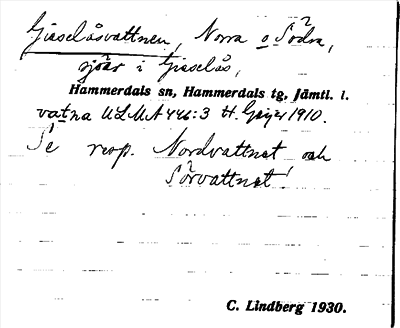 Gisselåsvattnen, Norra o Södra,
sjöar i Gisselås,
Hammerdals sn, Hammerdals tg, Jämtl. l.
vatna ULMA 446:3 H. Geijer 1910.
Se resp. Nordvattnet och
Sörvattnet!
C. Lindberg 1930.